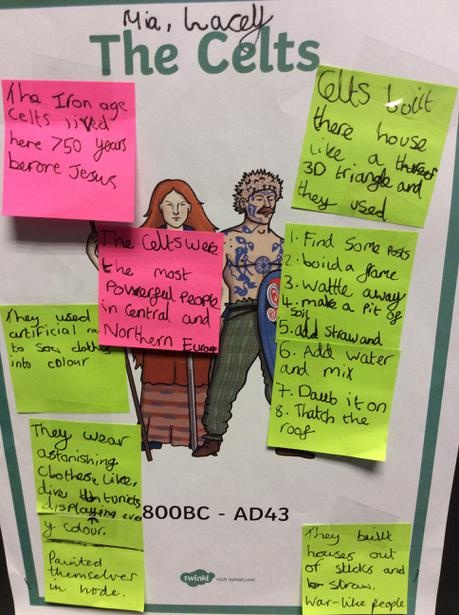 Mia, Lacey
The Celts
The Iron age
Celts lived
here 750 years
berore Jesus
Celts built
there house
like a
3D triangle and
they used
The Celts were
the most
Powerful People
in Central and
Northern Europe
1. Find Some Posts
2. build a frame
3. wattle away
4. make a Pit of
Soil
5. add straw and
6. Add water
and mix
7. Daub it on
8. Thatch the
roof
They used
artificial
to Sow clothes
into colour
They wear
astonishing
Clothes, Like,
tunics
displaying ever
y colour.
Painted
themselves
in wode.
800BC - AD43
They built
houses out
of sticks and
straw.
War-like People
twinkl visit twinkl.com